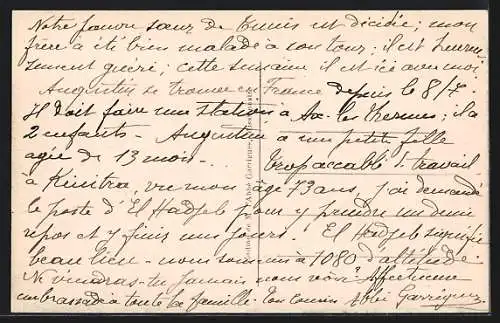 Notre pauvre sœur de Tunis est décédée ; mon
frère a été bien malade à son tour ; il est heureu
sement guéri ; cette semaine il est ici avec moi
Augustin se trouve en France depuis le 8/7
Il doit faire une station à Ax-les-Thermes ; il a
2 enfants - Augustine a une petite fille
agée de 13 mois -
trop accablé d travail
à Kénitra, vu mon âge 73 ans, j'ai demandé
le poste d'El Hadjeb pour y prendre un demi
repos et y finir mes jours ! El Hadjeb signifie
beau lieu - nous sommes à 1080 d'altitude -
Ne viendras-tu jamais nous voir ? Affectueux
embrassades à toute la famille. Ton cousin Abbé Garrigues